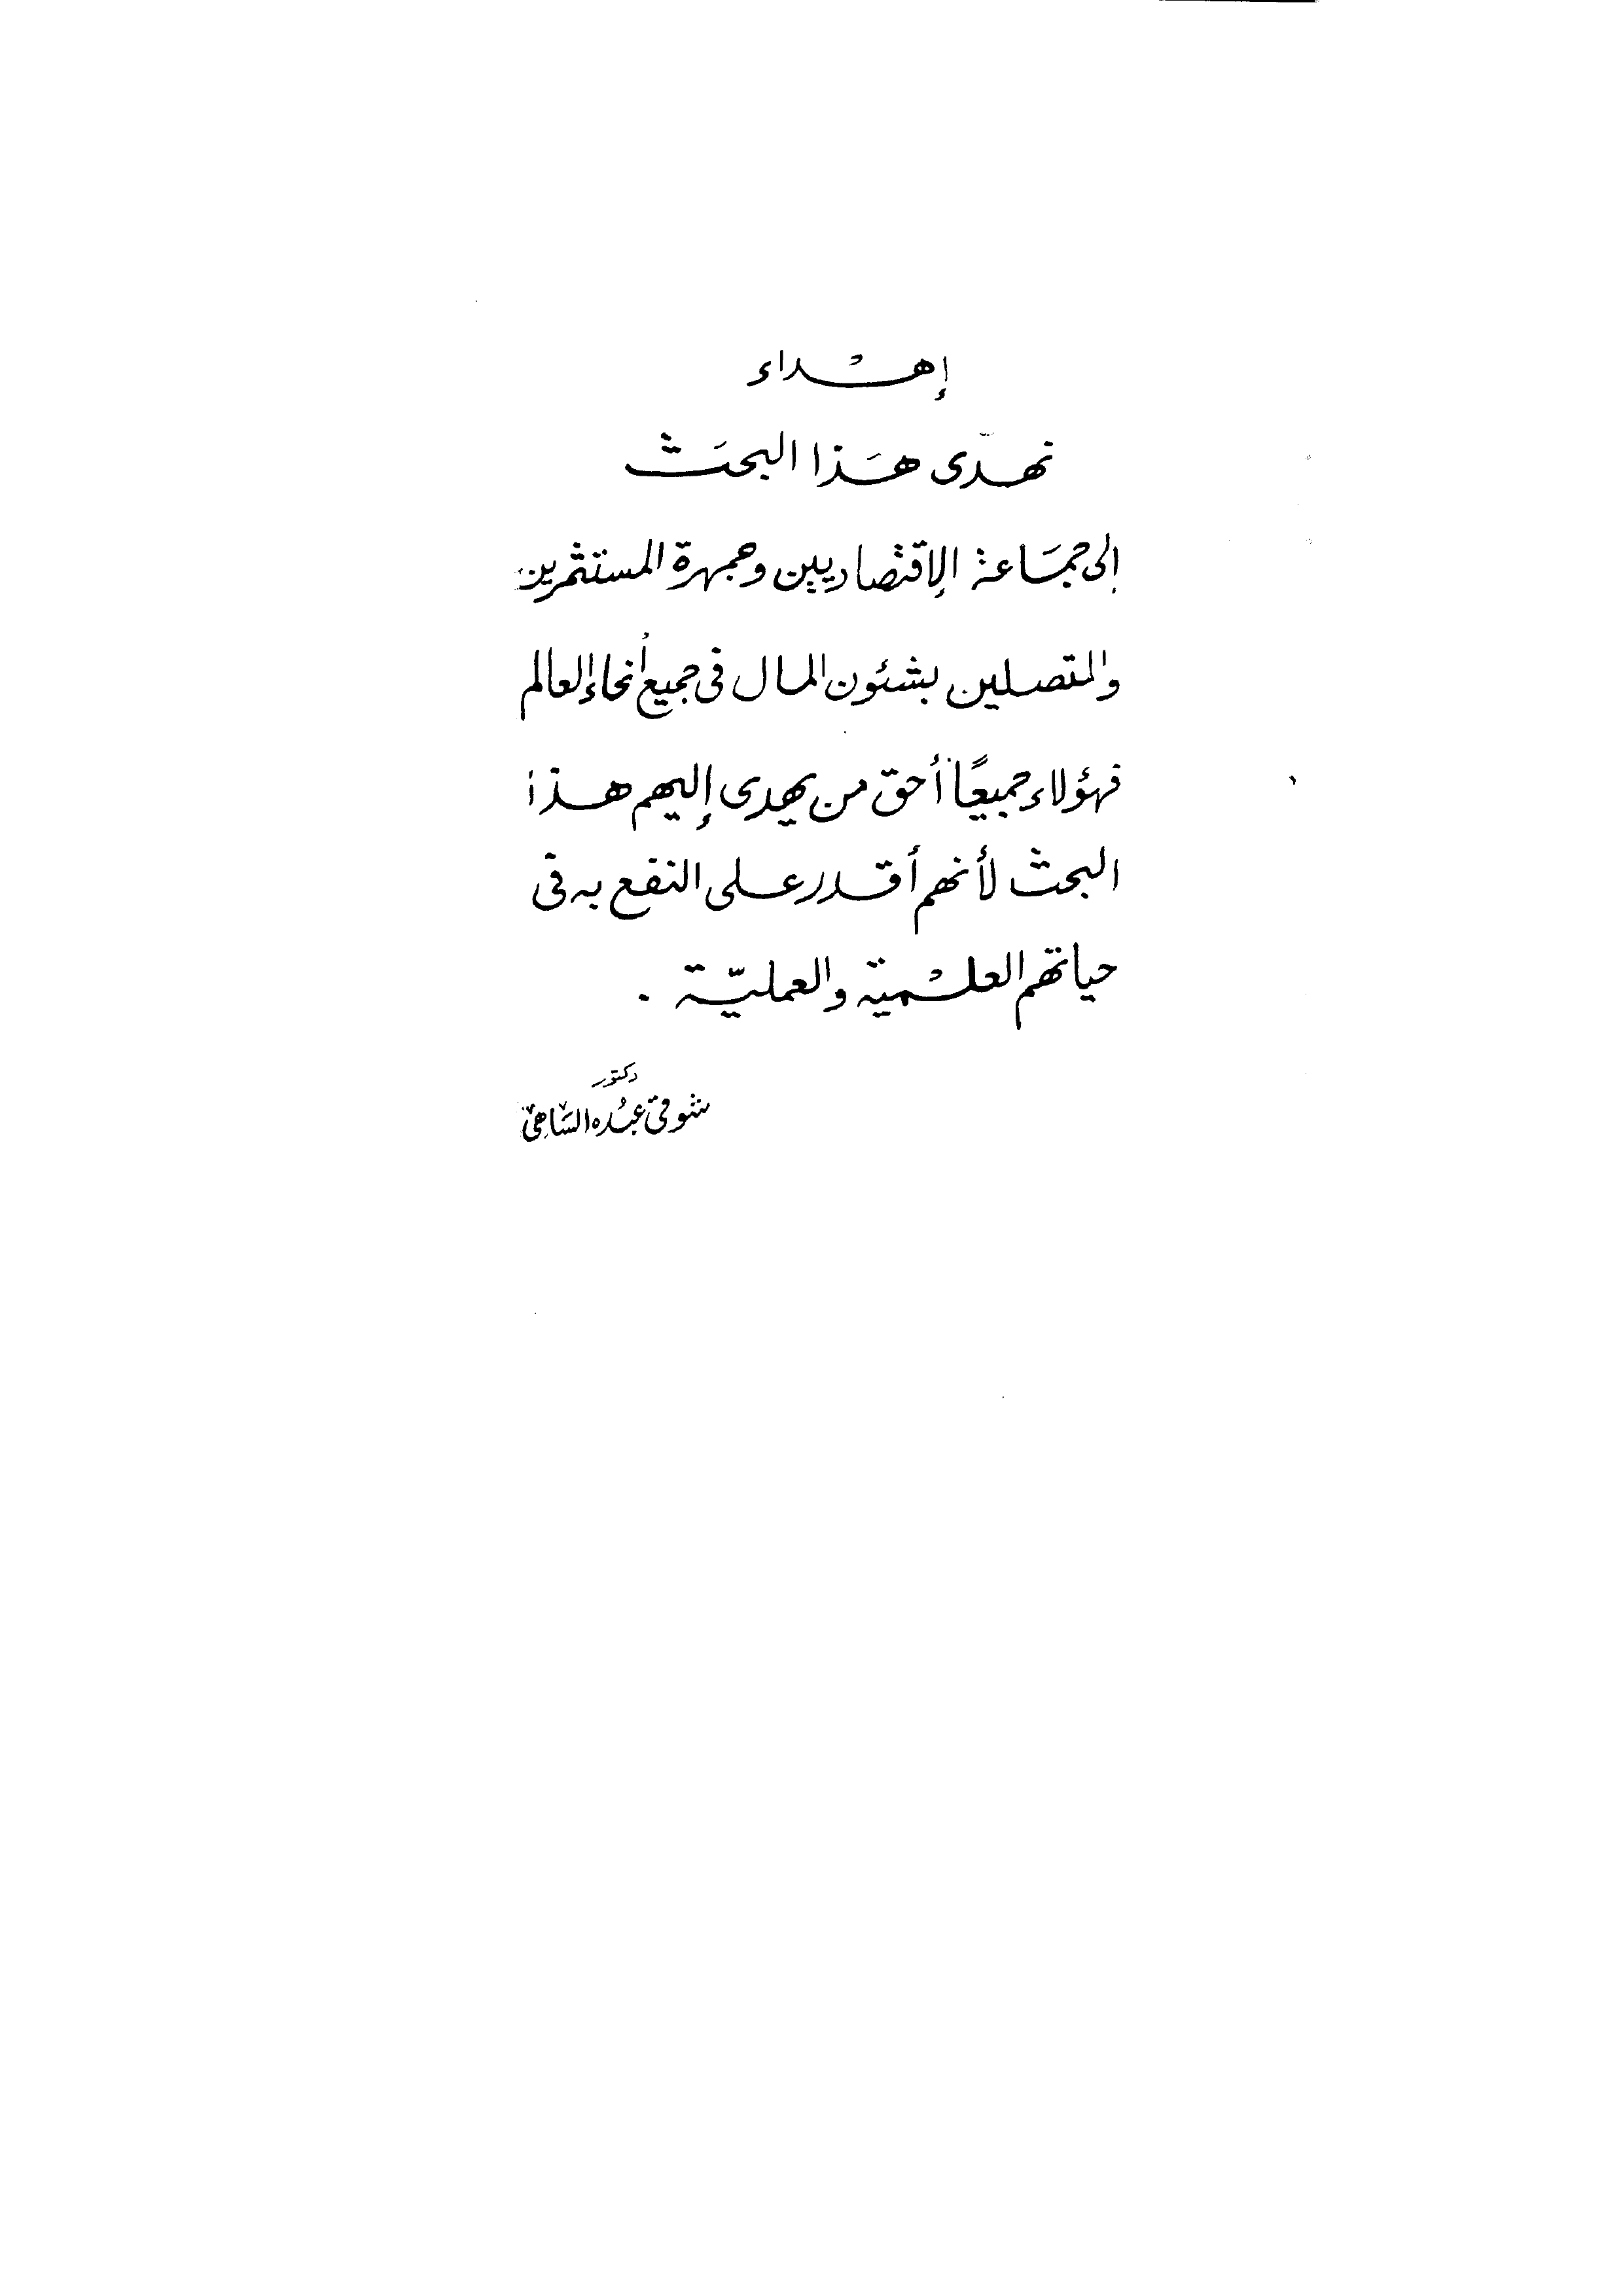 إهداء
نهدى هذا البحث
إلى جماعة الإقتصاديين وجمهرة المستثمرين
والمتصلين بشئون المال فى جميع أنحاء العالم
فهؤلاء جميعًا أحق من يهدى إليهم هذا
البحث لأنهم أقدر على النفع به فى
حياتهم العلمية والعمليّة .
دكتور
شوقى عبده الساهى